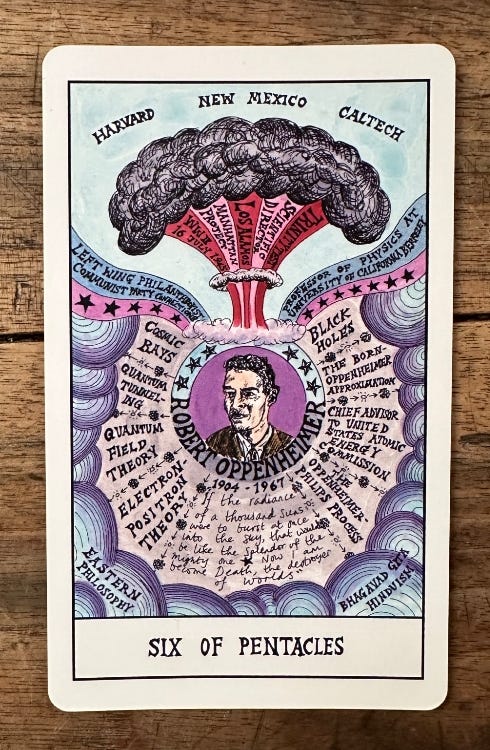 HARVARD
NEW MEXICO
CALTECH
WWII
16 JULY 1945
MANHATTAN
PROJECT
LOS ALAMOS
SCIENTIFIC
DIRECTOR
TRINITY TEST
LEFT WING PHILANTHROPIST
COMMUNIST PARTY CONNECTIONS
PROFESSOR OF PHYSICS AT
UNIVERSITY OF CALIFORNIA BERKELEY
COSMIC
RAYS
QUANTUM
TUNNEL-
ING
QUANTUM
FIELD
THEORY
ELECTRON
POSITRON
THEORY
BLACK
HOLES
THE BORN-
OPPENHEIMER
APPROXIMATION
CHIEF ADVISOR
TO UNITED
STATES ATOMIC
ENERGY
COMMISSION
THE
OPPENHEIMER
PHILIPS PROCESS
ROBERT OPPENHEIMER
1904 - 1967
"If the radiance
of a thousand suns
were to burst at once
into the sky, that would
be like the splendor of the
mighty one ★ Now I am
become Death, the destroyer
of Worlds"
EASTERN
PHILOSOPHY
BHAGAVAD GITA
HINDUISM
SIX OF PENTACLES